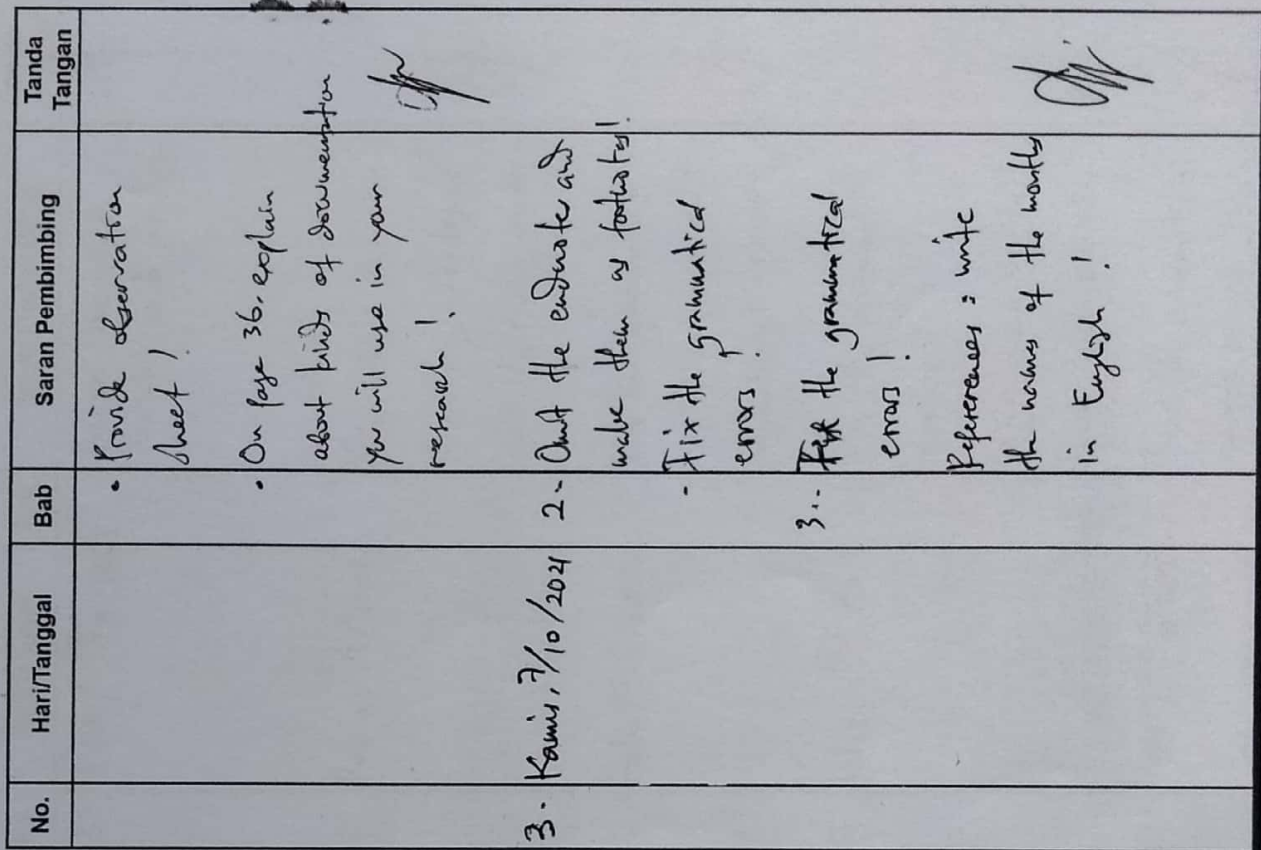 No. Hari/Tanggal Bab Saran Pembimbing Tanda Tangan
• Provide observation
sheet!
• On page 36. explain
about kinds of documentation
you will use in your
research!
3. Kamis, 7/10/2021 2 - Omit the endnote and
make them as footnotes!
- Fix the grammatical
errors!
3. - Fix the grammatical
errors!
References : write
the names of the months
in English!